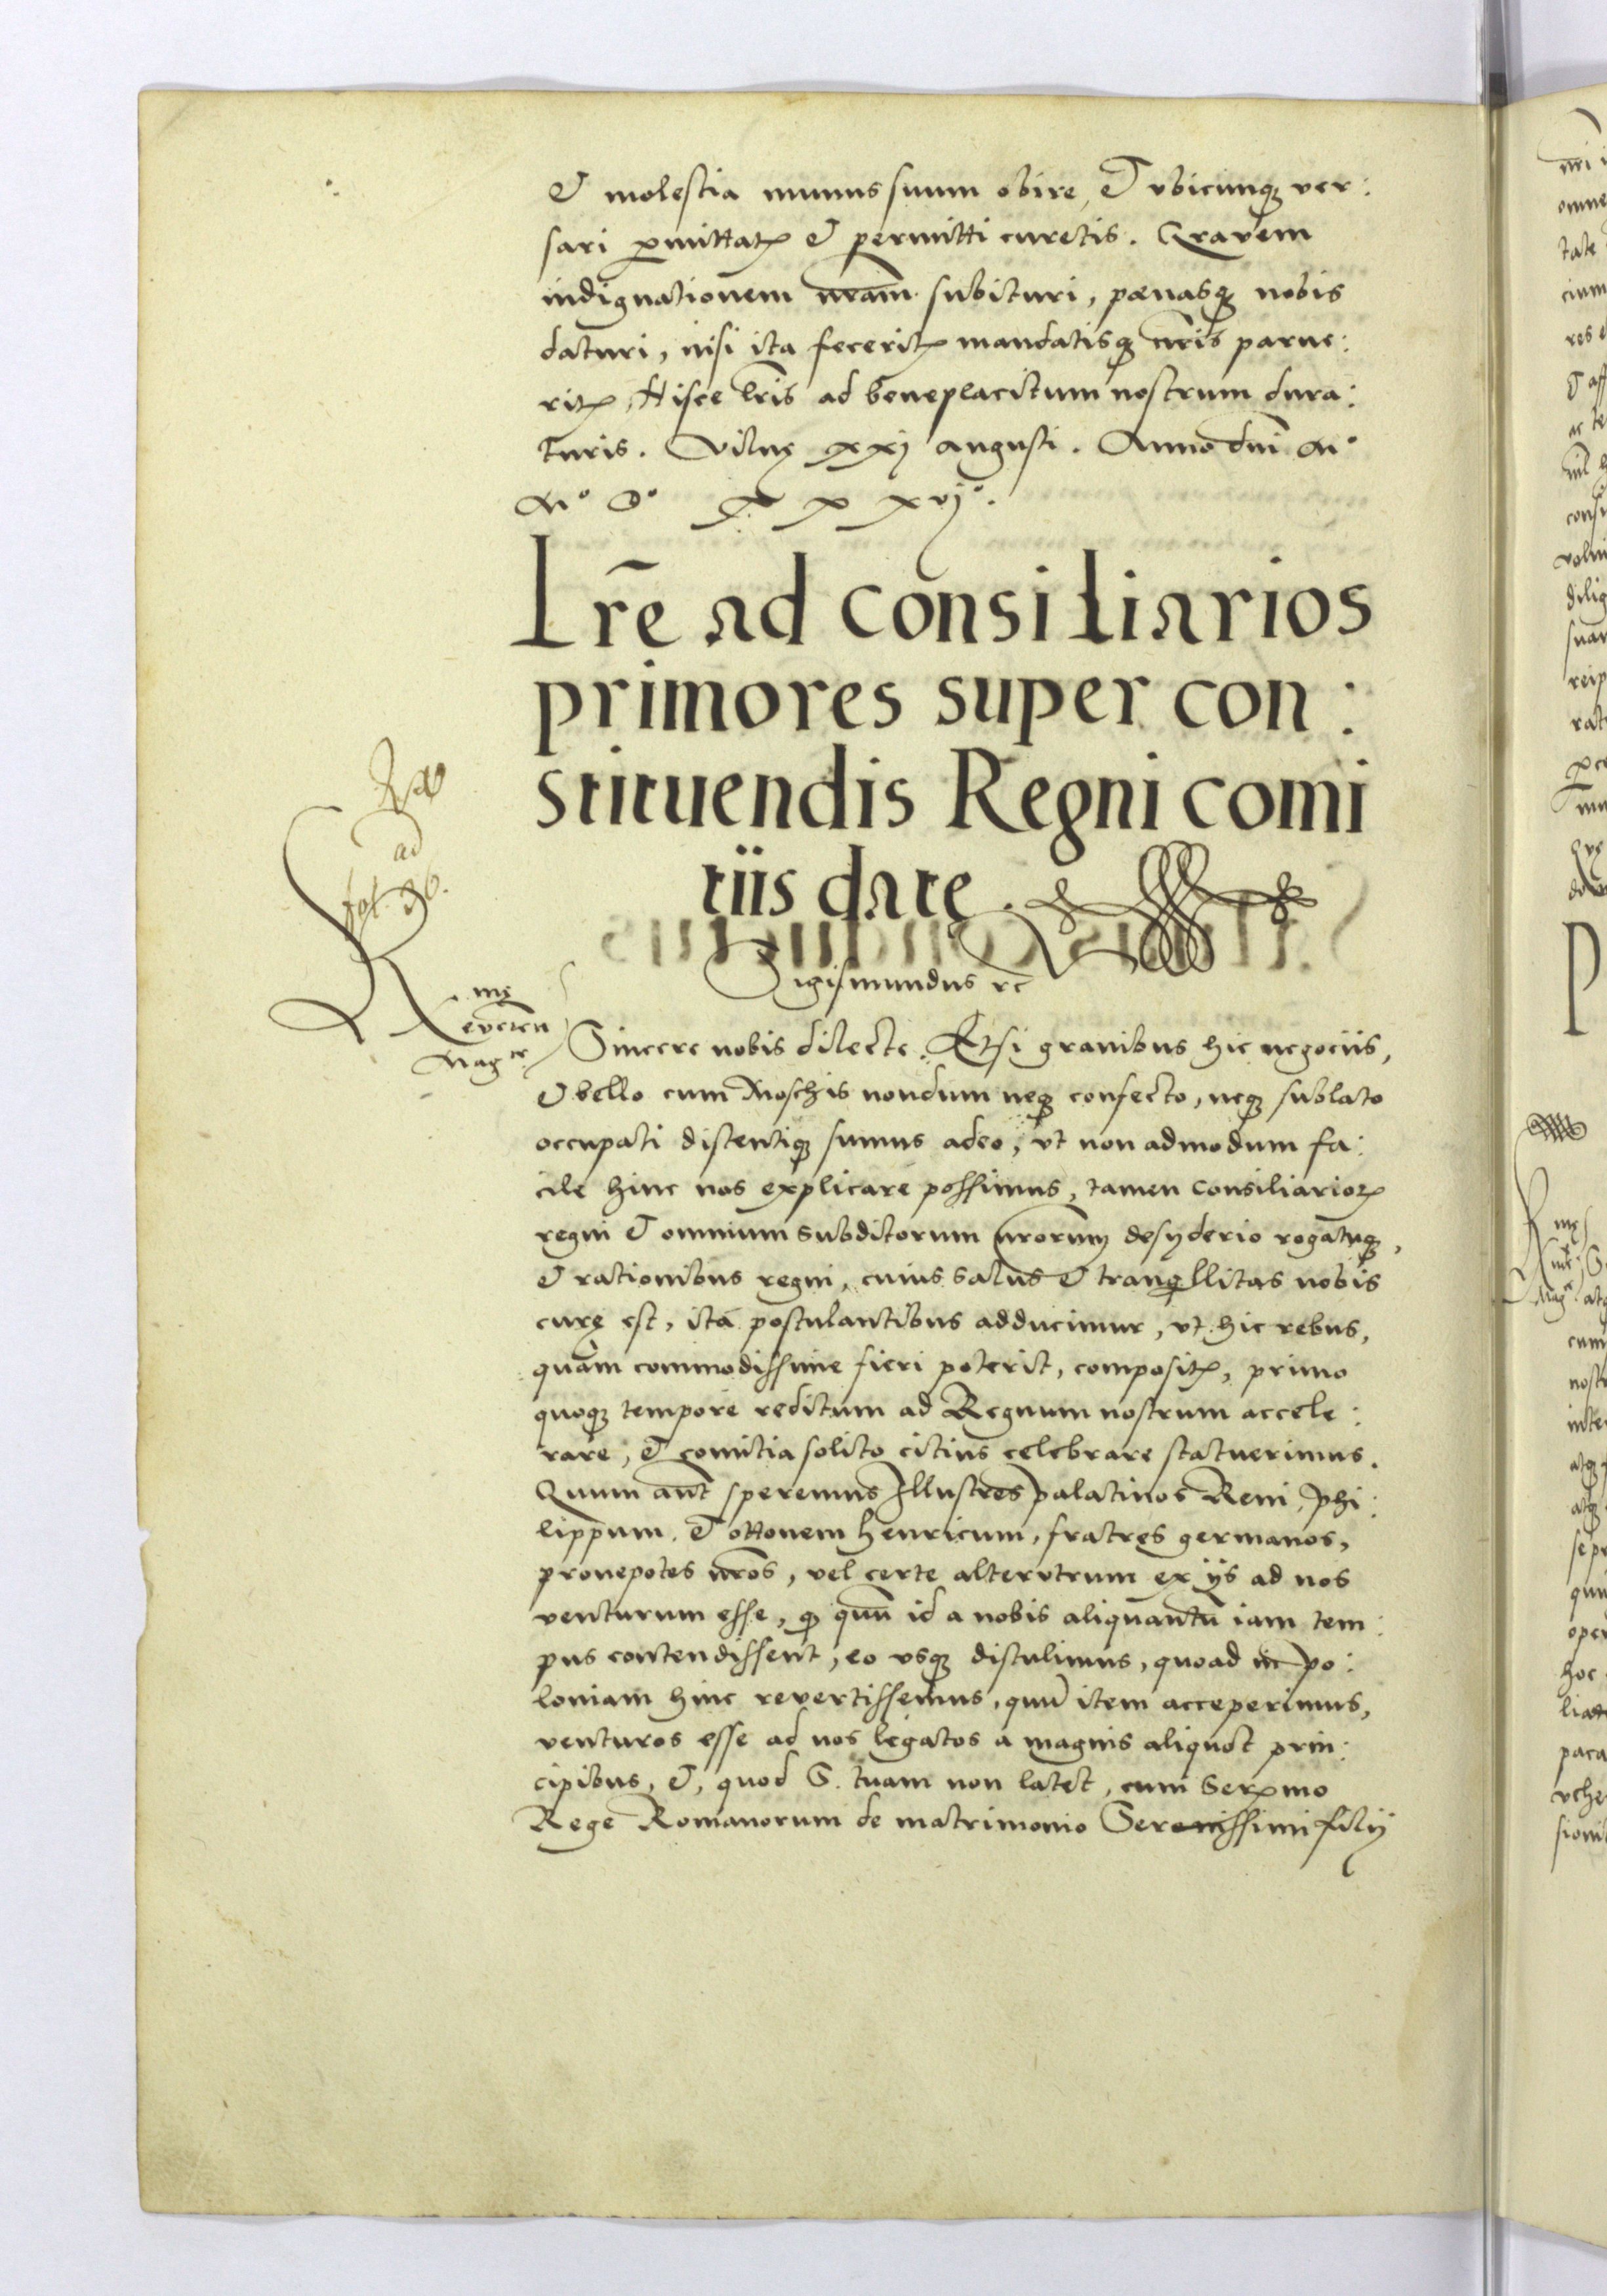 & molestia munus suum obire, & vbicunq3 ver:
sari p̱mittatꝭ & permitti curetis. Gravem
indignationem nr̄am subituri, pœnasq3 nobis
daturi, nisi ita feceritꝭ mandatisq3 nr̄is parue:
ritꝭ, Hisce lr̄is ad beneplacitum nostrum dura:
turis. Vilnę xxj augusti. Anno dn̄i M°
M° D° x x xvj°.
Lr̄e ad consiliarios
primores super con:
stituendis Regni comi
tiis datę.
ad
fol. 36.
Sigismundus rc
mę
Reveren
Mag^ce
Sincere nobis dilecte. Etsi gravibus hic negociis,
& bello cum Moschis nondum neq3 confecto, neq3 sublato
occupati distentiq3 sumus adeo, vt non admodum fa:
cile hinc nos explicare possimus, tamen consiliarioꝝ
regni & omnium subditorum nr̄orum desyderio rogatuq3,
& rationibus regni, cuius salus & tranqͥllitas nobis
curę est, ita postulantibus adducimur, vt hic rebus,
quàm commodissime fieri poterit, compositꝭ, primo
quoq3 tempore reditum ad Regnum nostrum accele:
rare, & comitia solito citius celebrare statuerimus.
Quum aut̄ speremus Illustres palatinos Reni, Phi:
lippum, & ottonem henricum, fratres germanos,
pronepotes nr̄os, vel certe altervtrum ex ijs ad nos
venturum esse, qͥ quū id a nobis aliquantū iam tem:
pus contendissent, eo vsq3 distulimus, quoad in po:
loniam hinc revertissemus, quū item acceperimus,
venturos esse ad nos legatos a magnis aliquot prin:
cipibus, &, quod S. tuam non latet, cum Serꝫmo
Rege Romanorum de matrimonio Serenissimi filij